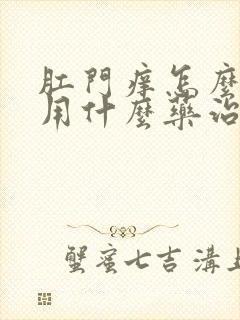 肛門痒怎麼
用什麼藥治
蟹蜜七吉溝